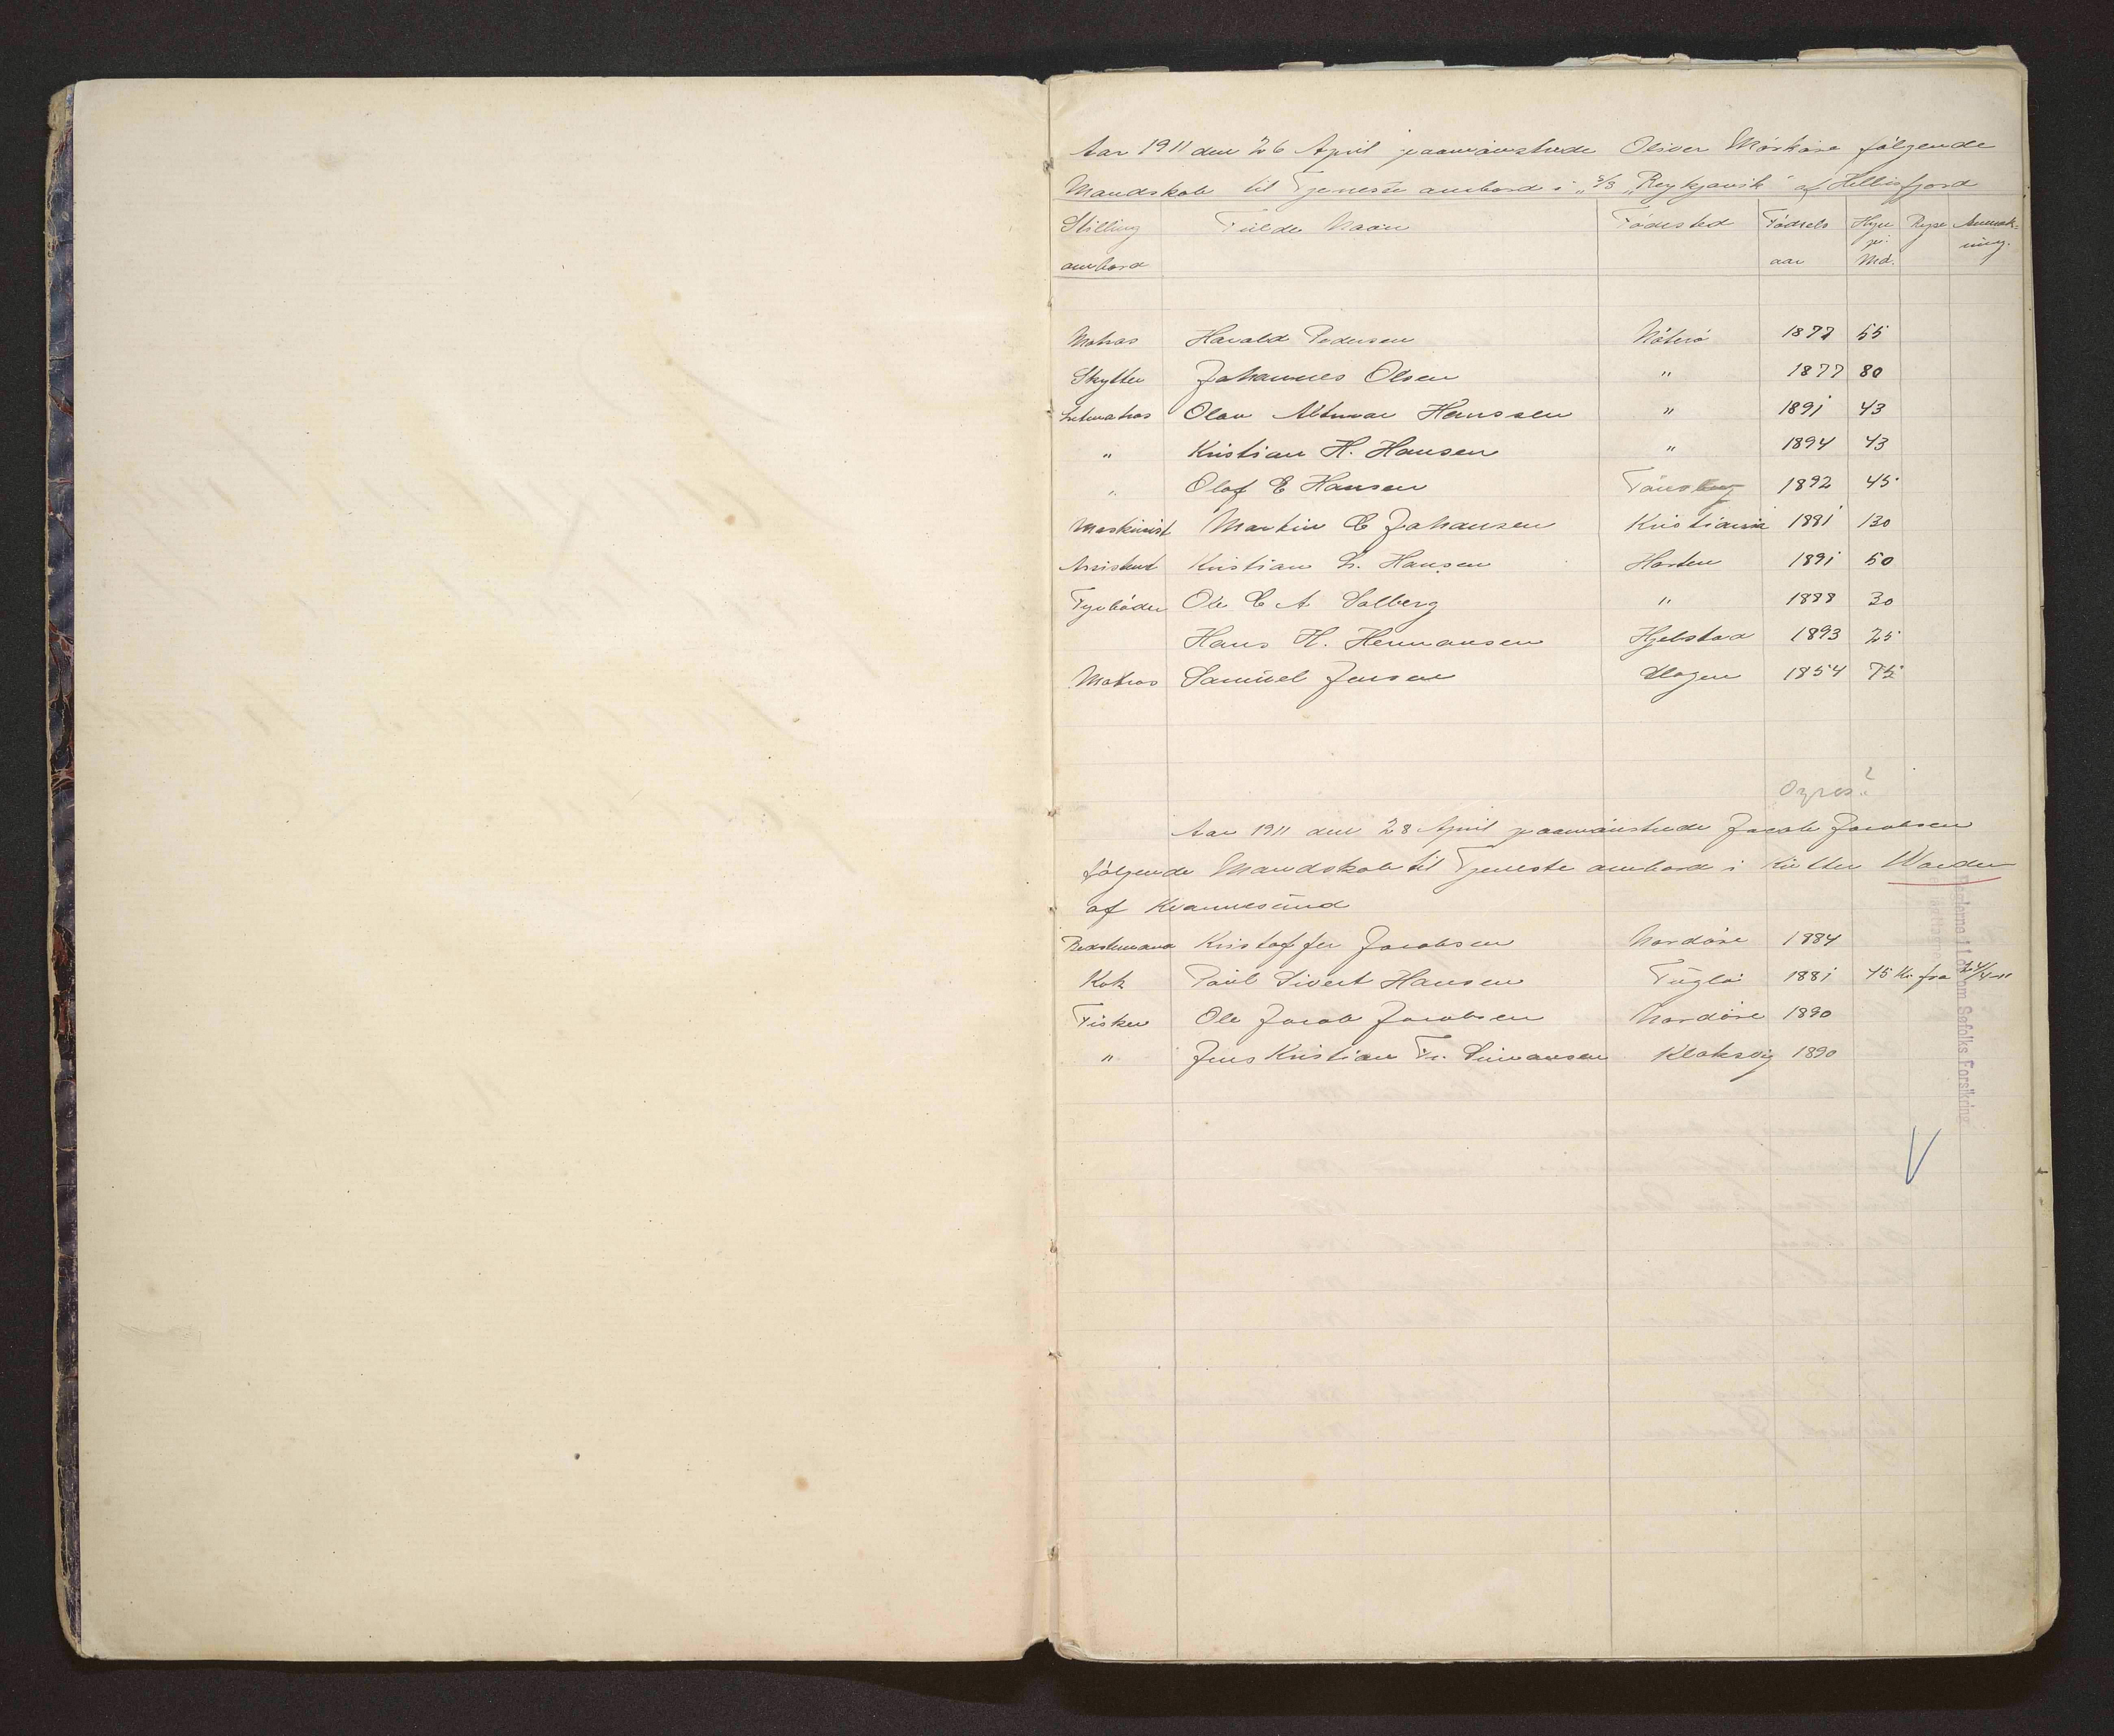 Aar 1911 den 26 April paamönstrede Oliver Mörköre følgende
Mandskab til Tjeneste ombord i "S/S "Reykjavik" af Hellisfjord
Stilling ombord Fulde Navn Födested Födsels aar Hyre pr. Md. Rejse Anmærkning.
Matros Harald Pedersen Nöterö 1877 55
Skytter Johannes Olsen " 1877 80
Letmatros Olav Hanssen " 1891 43
" Kristian H. Hansen " 1894 43
" Olaf E Hansen Tönsberg 1892 45
Maskinist Martin C Johansen Kristiania 1881 130
Assistent Kristian L. Hansen Horten 1891 50
Fyrböder Ole C A Solberg " 1888 30
Hans H. Hermansen Hjelstad 1893 25
Matros Samüel Jensen Slagen 1854 75
Aar 1911 den 28 April paamönstrede Jacob Jacobsen
følgende Mandskab til Tjeneste ombord i Kutter Warden
af Kvannesünd
Bedstemand Kristoffer Jacobsen Nordöre 1884
Kok Poül Sivert Hansen Füglö 1881 45 Kr fra
Fisker Ole Jacob Jacobsen Nordöre 1890
" Jens Kristian Fr. Simonsen Klaksvig 1890